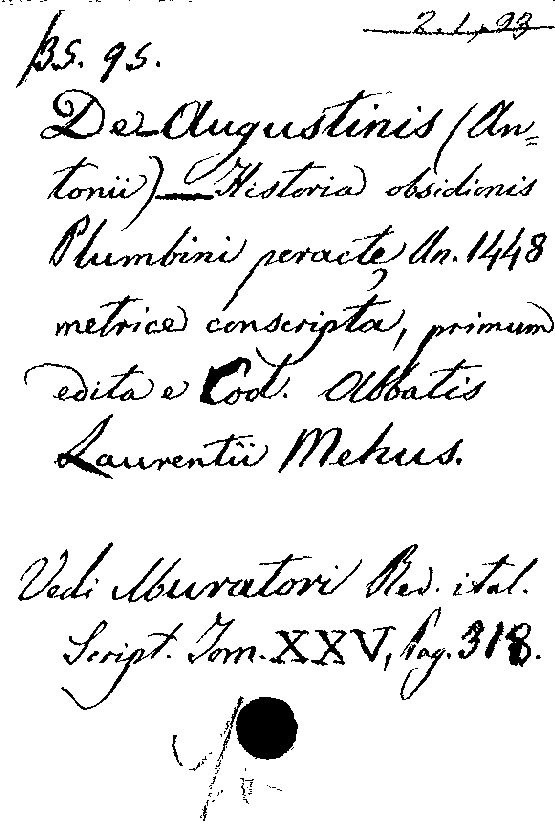 2.1.93
B.S. 9S.
De-Augustinis (An=
tonii) — Historia obsidionis
Plumbini peracte, An. 1448
metrice conscripta, primum
edita e Cod. Abbatis
Laurentii Mehus.
Vedi Muratori Rer. ital.
Script. Tom. XXV, Pag. 318.